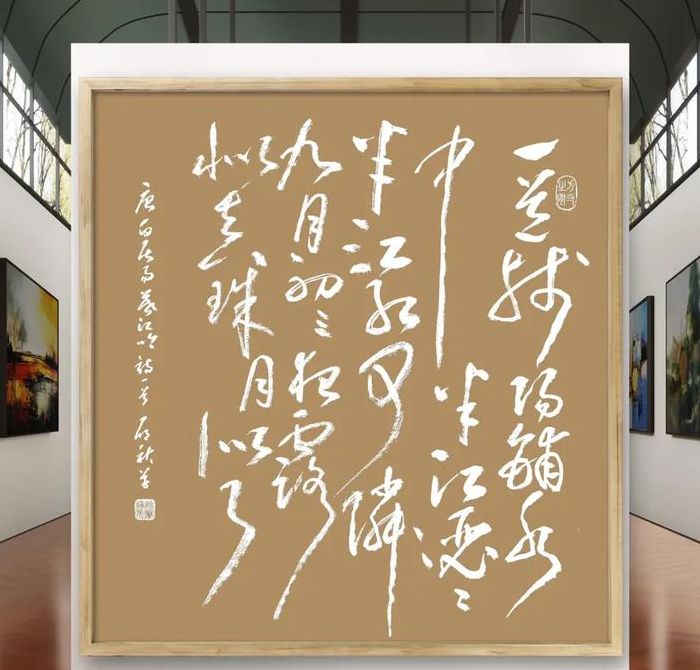 一道殘陽鋪水
中半江瑟〻
半江紅可憐
九月初三夜露
似真珠月似弓
唐白居易暮江吟詩一首